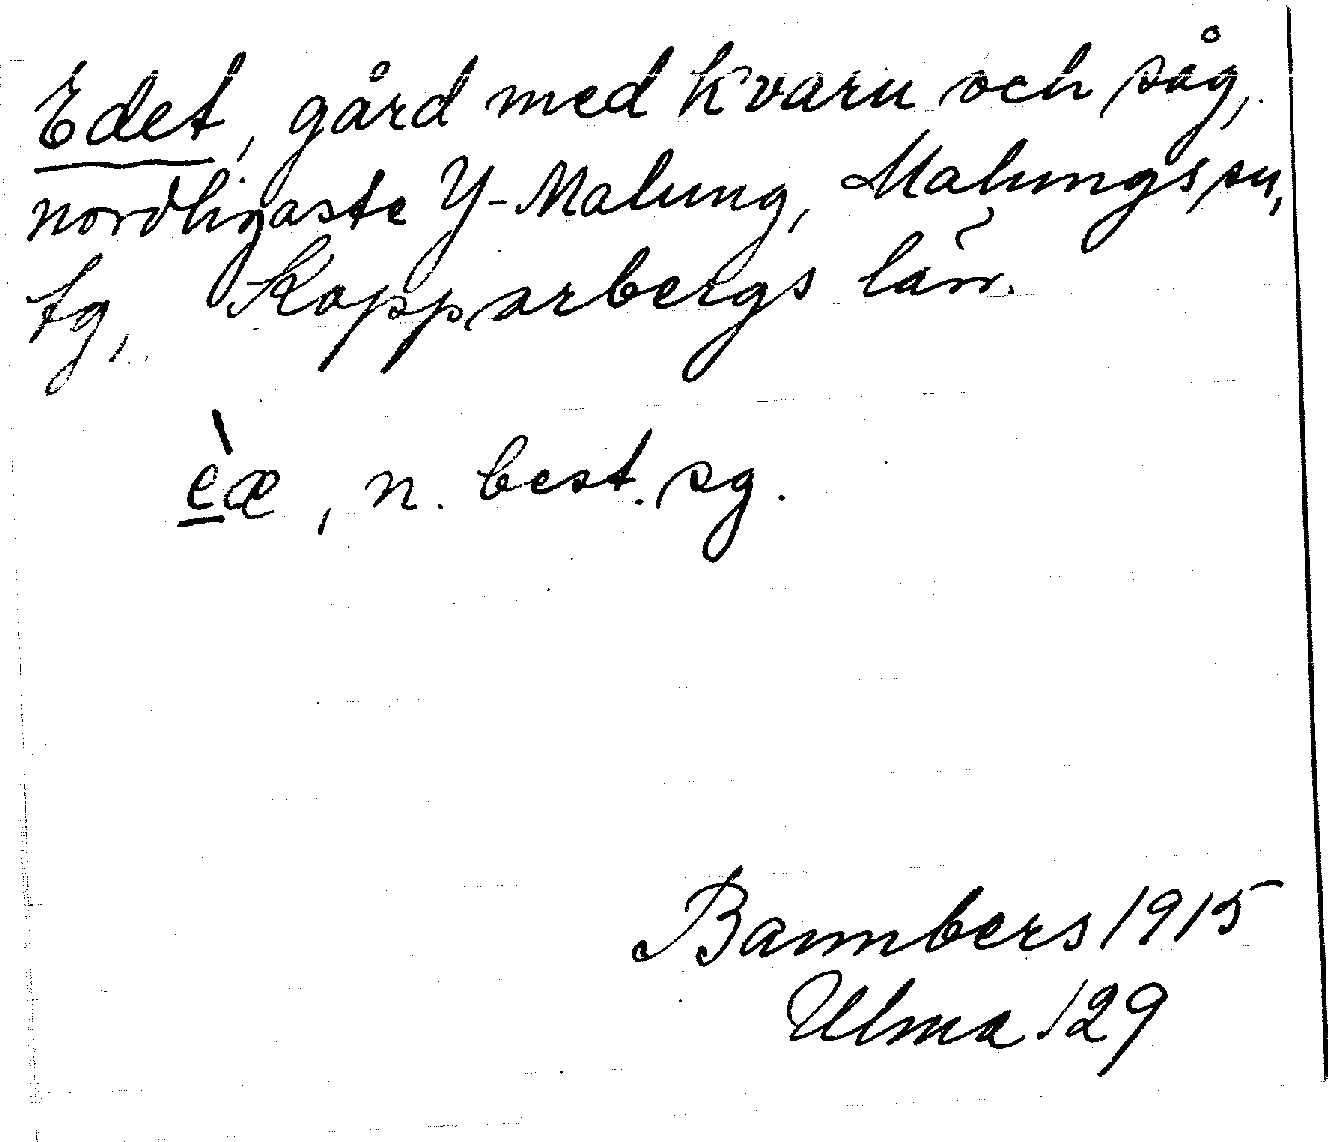 Edet, gård med kvarn och såg,
nordligaste Y-Malung, Malungs sn,
tg, Kopparbergs län.
èæ, n. best. sg.
Bannbers 1915
Ulma 129